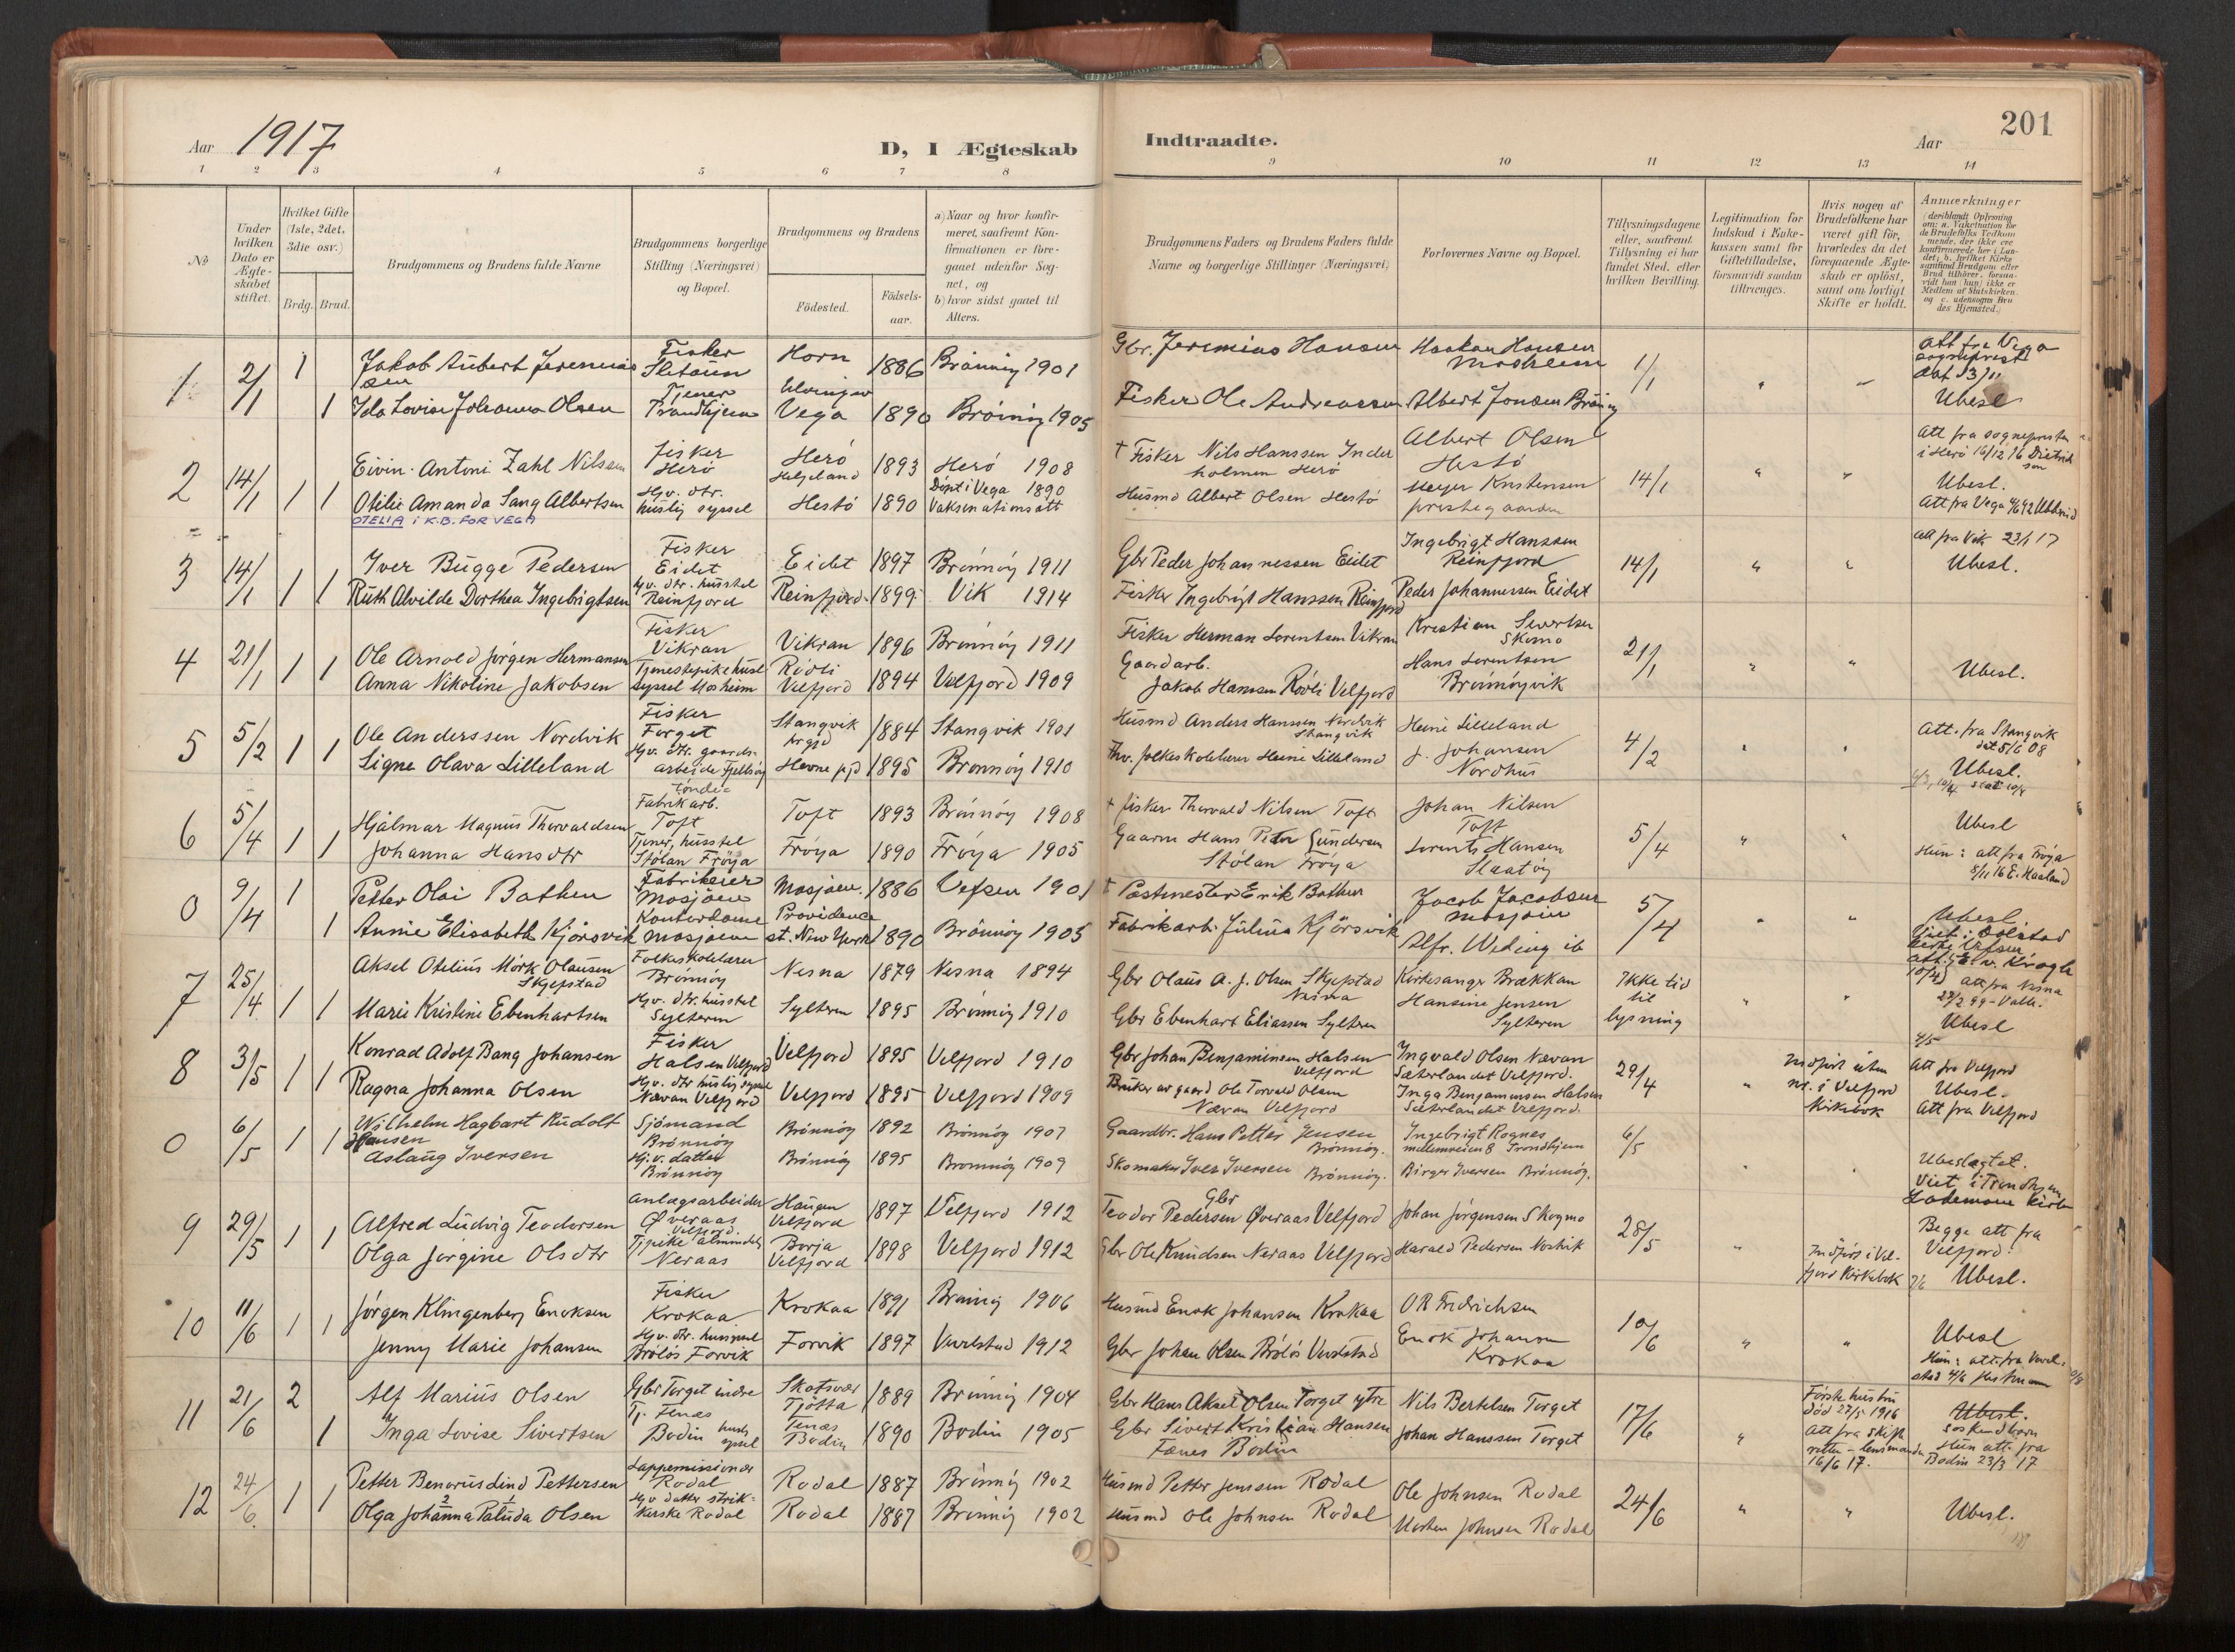 201
Aar 1917
D, I Ægteskab
Indtraadte.
Aar
1 2 3 4 5 6 7 8
9 10 11 12 13 14
№
Under hvilken Dato er Ægteskabet stiftet.
Hvilket Gifte (1ste, 2det, 3die osv.)
Brdg. Brud.
Brudgommens og Brudens fulde Navne
Brudgommens borgerlige Stilling (Næringsvei) og Bopæl.
Brudgommens og Brudens
Fødested.
Fødselsaar.
a) Naar og hvor konfirmeret, saafremt Konfirmationen er foregaaet udenfor Sognet, og
b) hvor sidst gaaet til Alters.
Brudgommens Faders og Brudens Faders fulde Navne og borgerlige Stillinger (Næringsvei)
Forlovernes Navne og Bopæl.
Tillysningsdagene eller, saafremt Tillysning ei har fundet Sted, efter hvilken Bevilling.
Legitimation for Indskud i Enkekassen samt for Giftetilladelse, forsaavidt saadan tiltrænges.
Hvis nogen af Brudefolkene har været gift før, hvorledes da det foregaaende Ægteskab er opløst, samt om lovligt Skifte er holdt.
Anmærkninger
1 2/1 1 Jakob Aubert Jeremiassen Fisker Horn 1886 Brönnöy 1901 Gbr. Jeremias Hansen Haakon Hansen Mosheim 1/1 att fra Vega
1 Ida Lovise Johanna Olsen Tjener Trondhjem Vega 1890 Brönnöy 1905 Fisker Ole Andreassen Albert Jonsen Brönnöy Ubesl
2 14/1 1 Eivin Antoni Zahl Nilssen Fisker Herö Herö Helgeland 1893 Herö 1908 † Fisker Nils Hanssen Inderholmen Herö Albert Olsen Hestö 14/1 Att fra sognepresten i Herö 16/12 16 Dietrichson
1 Otilie Amanda Sang Albertsen Gbr. dtr. huslig syssel Hestö 1890 Döpt i Vega 1890 Vaksinationsatt Husmd Albert Olsen Hestö Meyer Kristensen prestegaarden Ubesl. Att fra Vega
OTELIA i K.B. FOR VEGA
3 14/1 1 Iver Bugge Pedersen Fisker Eidet Eidet 1897 Brönnöy 1911 Gbr Peder Johannessen Eidet Ingebrigt Hanssen Reinfjord 14/1 att fra Vik 23/1 17
1 Ruth Alvilde Dorthea Ingebrigtsen Gv. dtr. husstel Reinfjord Reinfjord 1899 Vik 1914 Fisker Ingebrigt Hanssen Reinfjord Peder Johannessen Eidet Ubesl.
4 21/1 1 Ole Arnold Jörgen Hermansen Fisker Vikran Vikran 1896 Brönnöy 1911 Fisker Herman Lorentsen Vikran Kristian Sivertsen Skomo 21/1
1 Anna Nikoline Jakobsen Tjenestepike husl syssel Mosheim Rööli Velfjord 1894 Velfjord 1909 Gaardarb. Jakob Hansen Rööli Velfjord Hans Lorentsen Brönnöyvik Ubesl.
5 5/2 1 Ole Anderssen Nordvik Fisker Torget Stangvik 1884 Stangvik 1901 Husmd Anders Hanssen Nordvik Stangvik Heine Lilleland 4/2 Att. fra Stangvik dat 5/6 08
1 Signe Olava Lilleland Gv. dtr. gaardsarbeide Hevne 1895 Brönnöy 1910 Fhv. folkeskolelærer Heine Lilleland J. Johansen Nordhus Ubesl.
6 5/4 1 Hjalmar Magnus Thorvaldsen Töndefabrikarb. Toft Toft 1893 Brönnöy 1908 † fisker Thorvald Nilsen Toft Johan Nilsen Toft 5/4 Ubesl
1 Johanna Hansdtr Tjener, husstel Stölan Fröya Fröya 1890 Fröya 1905 Gaarm Hans Peter Gundersen Stölan Fröya Lorents Hansen Slaatöy Hun: att fra Fröya 8/11 16 E. Haaland
0 9/4 1 Petter Olai Bathen Fabrikeier Mosjöen Mosjöen 1886 Vefsen 1901 † Postmester Erik Bathen Jacob Jacobsen Mosjöen 5/4
1 Annie Elisabeth Kjörsvik Kontordame Mosjöen Providence st. New York 1890 Brönnöy 1905 Fabrikarb. Julius Kjörsvik Alfr. Weding ib Ubesl. Viet i Dolstad kirke Vefsen
7 25/4 1 Aksel Otelius Mörk Olausen Skjefstad Folkeskolelærer Brönnöy Nesna 1879 Nesna 1894 Gbr Olaus A. J. Olsen Skjefstad Nesna Kirkesanger Brækkan Ikke tid til lysning att fra Nesna
1 Marie Kristine Ebenhartsen Gv. dtr. husstel Sylteren Sylteren 1895 Brönnöy 1910 Gbr Ebenhart Eliassen Sylteren Hansine Jensen Sylteren Ubesl
8 3/5 1 Konrad Adolf Bang Johansen Fisker Halsen Velfjord Velfjord 1895 Velfjord 1910 Gbr Johan Benjaminsen Halsen Velfjord Ingvald Olsen Nævan Sæterlandet Velfjord. 29/4 Indfört uten nr. i Velfjord Kirkebok Att fra Velfjord
1 Ragna Johanna Olsen Gv. dtr huslig syssel Nævan Velfjord Velfjord 1895 Velfjord 1909 Bruker av gaard Ole Torvald Olsen Nævan Velfjord Inga Benjaminsen Halsen Sæterlandet Velfjord. Ubesl. Att fra Velfjord
0 6/5 1 Wilhelm Hagbart Rudolf Hansen Sjömand Brönnöy Brönnöy 1892 Brönnöy 1907 Gaardbr. Hans Petter Jensen Brönnöy. Ingebrigt Rognes mellemveien 8 Trondhjem 6/5
1 Aslaug Iversen Gv. datter Brönnöy Brönnöy 1895 Brönnöy 1909 Skomaker Iver Iversen Brönnöy. Birger Iversen Brönnöy. Ubeslegtet. Viet i Trondhjem Lademoen Kirke
9 29/5 1 Alfred Ludvig Teodorsen Anlægsarbeider Øveraas Velfjord. Haugen Velfjord 1897 Velfjord 1912 Gbr Teodor Pedersen Øveraas Velfjord Johan Jörgensen Skogmo 28/5 Begge att fra Velfjord.
1 Olga Jörgine Olsdtr Neraas Borja Velfjord 1898 Velfjord 1912 Gbr Ole Knudsen Neraas Velfjord Harald Pedersen Indfört i Velfjord Kirkebok Ubesl.
10 11/6 1 Jörgen Klingenberg Enoksen Fisker Krokaa Krokaa 1891 Brönnöy 1906 Husmd Enok Johansen Krokaa O R Fridrichsen 10/6
1 Jenny Marie Johansen Gv. dtr. Brölös Forvik Forvik 1897 Vevelstad 1912 Gbr Johan Olsen Brölös Vevelstad Enok Johansen Krokaa Ubesl
11 21/6 2 Alf Marius Olsen Gbr Torget indre Skotsvær Tjötta 1889 Brönnöy 1904 Gbr Hans Aksel Olsen Torget ytre Nils Bertelsen Torget 17/6 Förste hustru död 27/5 1916 Ubesl. söskendbarn
1 Inga Lovise Sivertsen Tj. Fenes Bodin husl. syssel Fenes Bodin 1890 Bodin 1905 Gbr Sivert Kristian Hansen Fenes Bodin Johan Hanssen Torget Att fra skifteretten - lensmanden 16/6 17. Hun att. fra Bodin 23/3 17
12 24/6 1 Petter Benorius Lind Pettersen Lappemissionær Rodal Rodal 1887 Brönnöy 1902 Husmd Petter Jenssen Rodal Ole Johnsen Rodal 24/6
1 Olga Johanna Paluda Olsen Gv datter strikkerske Rodal Rodal 1887 Brönnöy 1902 Husmd Ole Johnsen Rodal Morten Johnsen Rodal Ubesl.